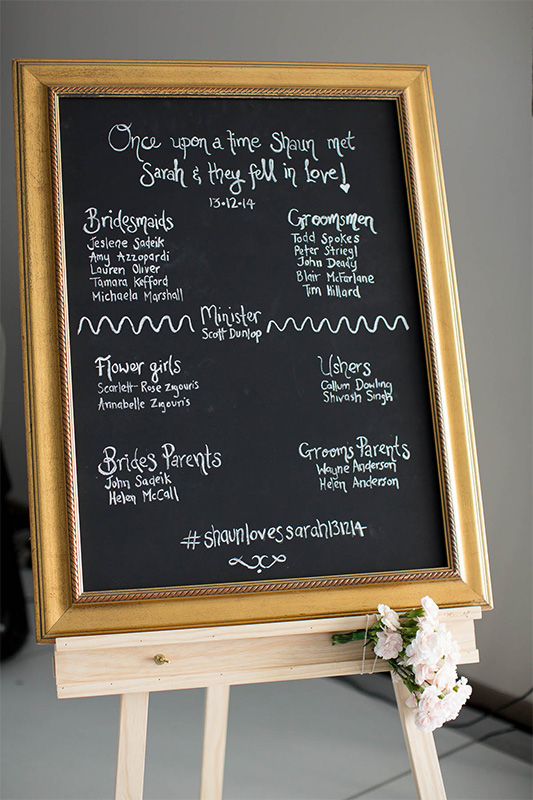 Once upon a time Shaun met
Sarah & they fell in love!
13·12·14
Bridesmaids
Jeslene Sadeik
Amy Azzopardi
Lauren Oliver
Tamara Kefford
Michaela Marshall
Groomsmen
Todd Spokes
Peter Strieyl
John Deady
Blair McFarlane
Tim Hillard
Minister
Scott Dunlop
Flower girls
Scarlett-Rose Zigouris
Annabelle Zigouris
Ushers
Callum Dowling
Shivash Singh
Brides Parents
John Sadeik
Helen McCall
Grooms Parents
Wayne Anderson
Helen Anderson
#shaunlovessarah131214